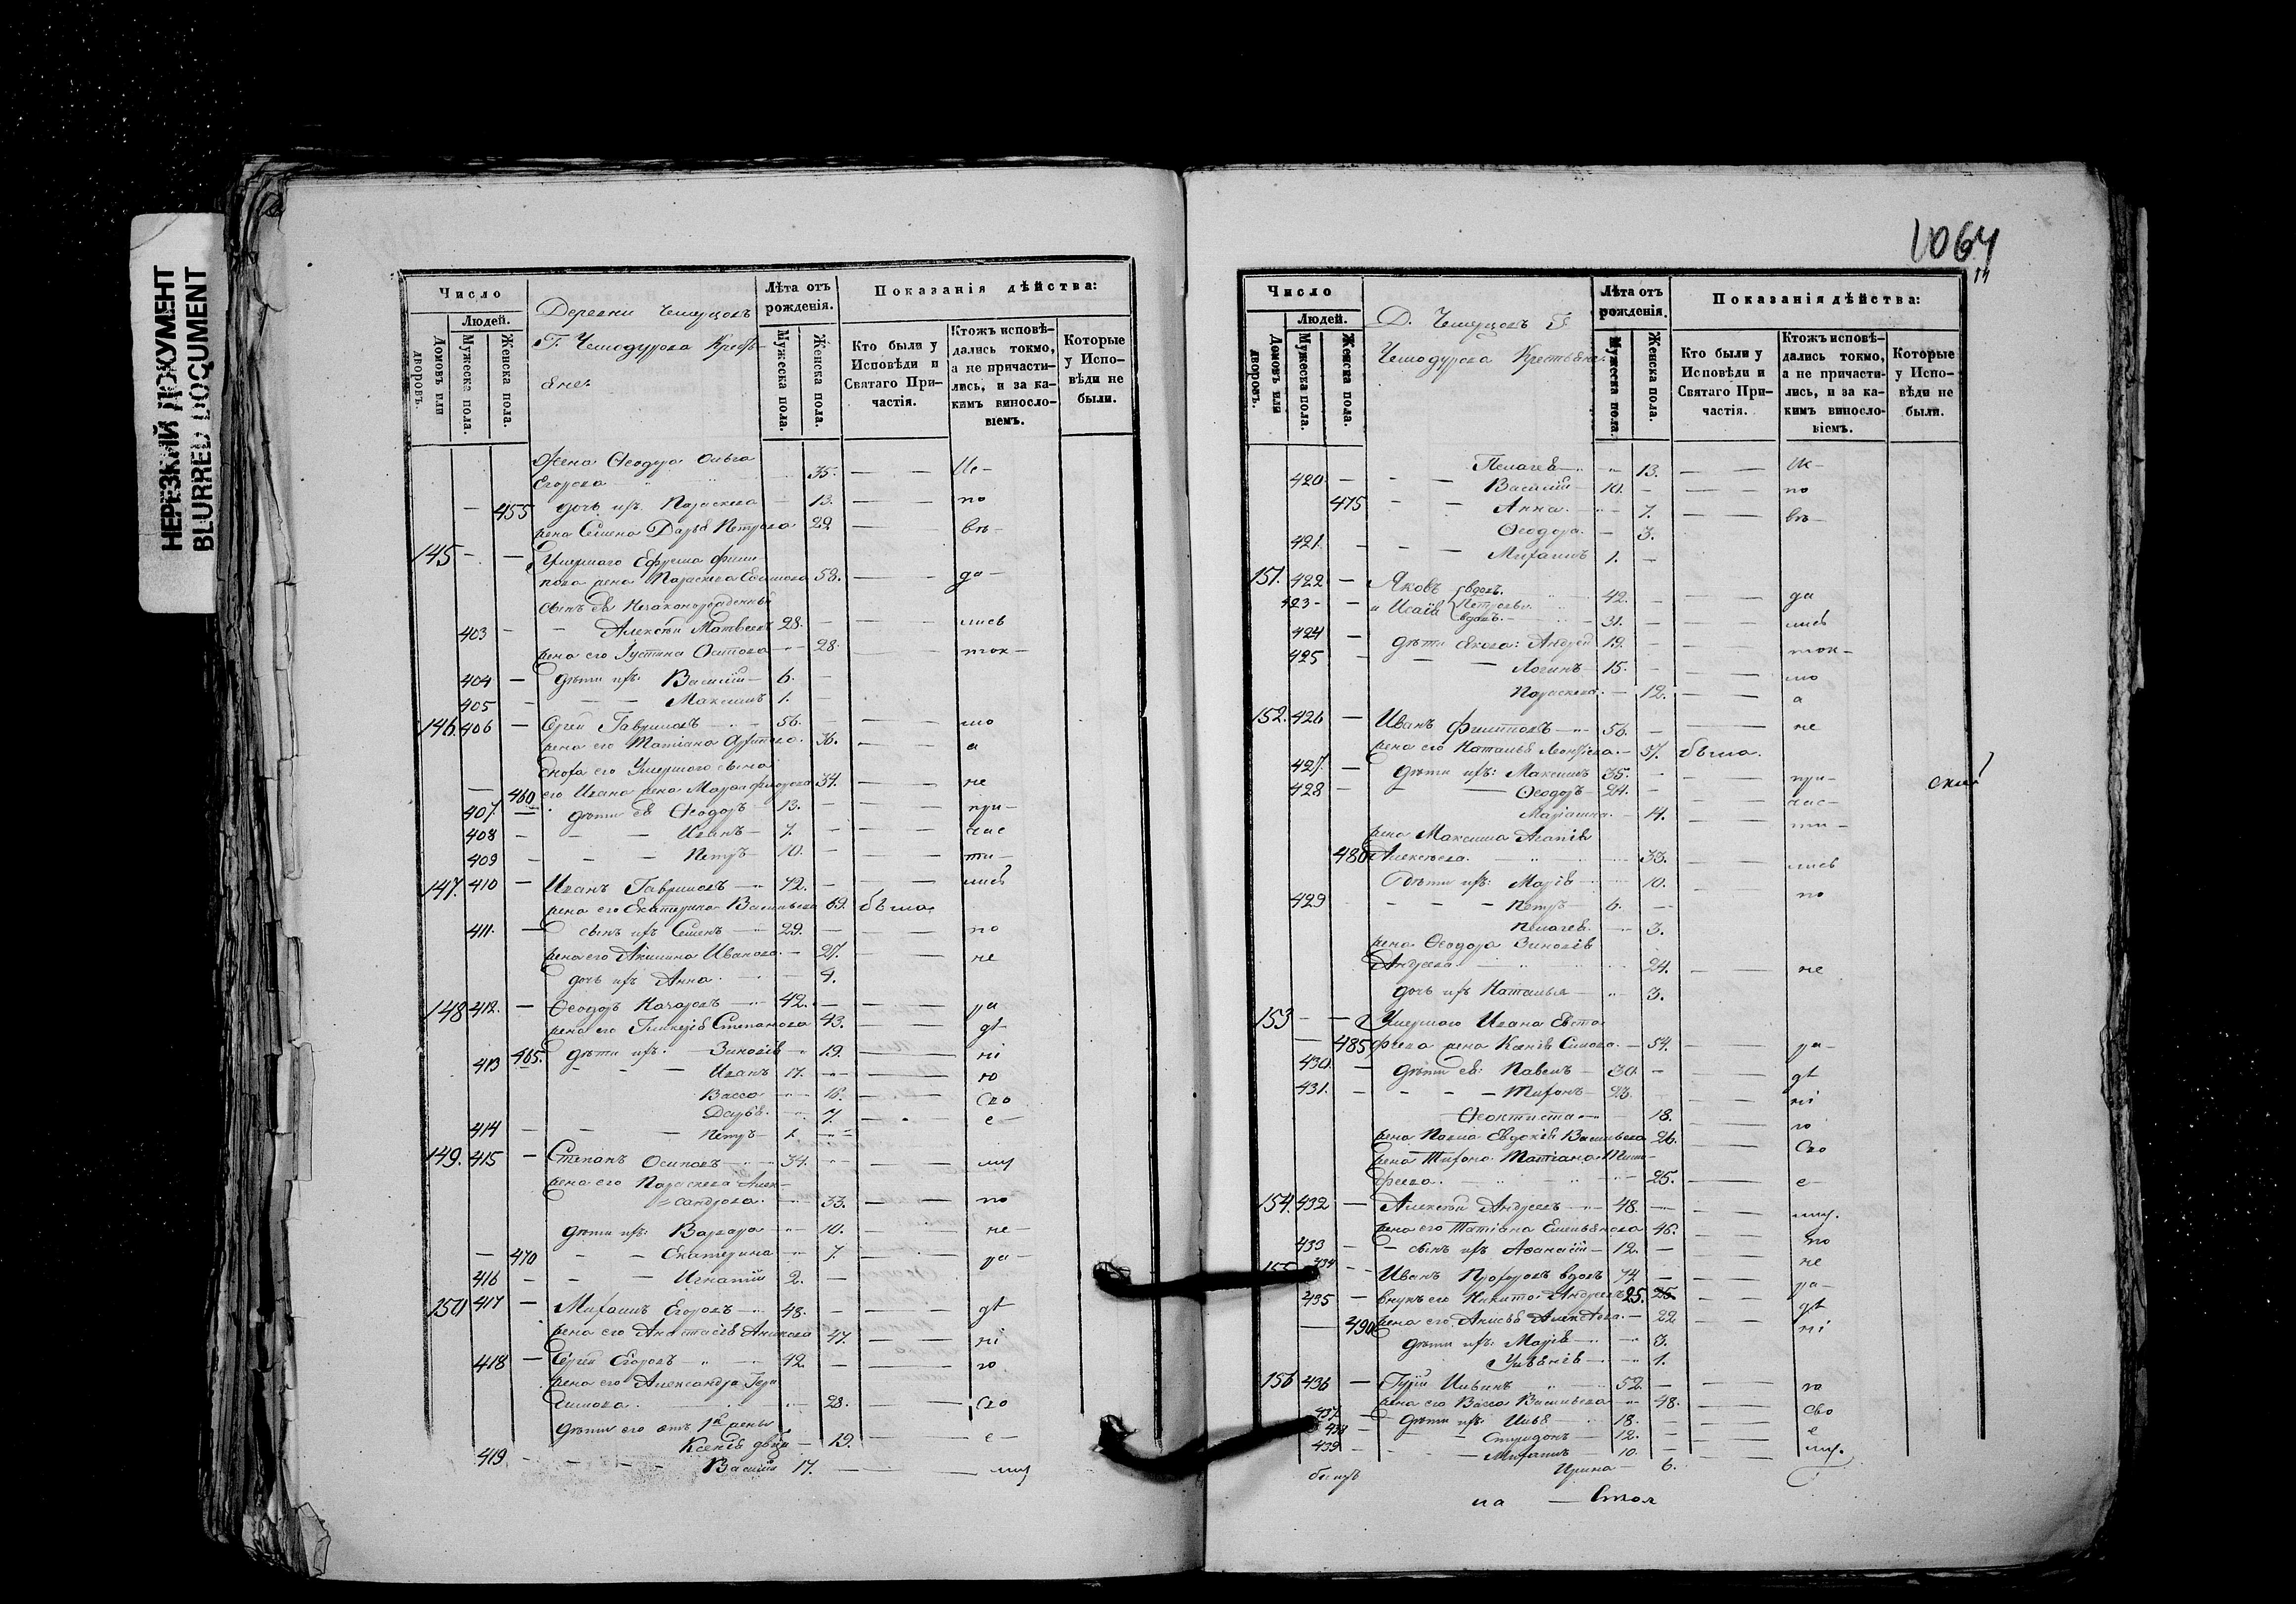 НЕРЕЗКИЙ ДОКУМЕНТ
BLURRED DOCUMENT
Число
Людей.
Домовъ или дворовъ.
Мужеска пола.
Женска пола.
Деревни
Г. Чемодурова Кресть-
яне.
Лѣта отъ рожденія.
Мужеска пола.
Женска пола.
Показанія дѣйства:
Кто были у Исповѣди и Святаго При- частія.
Ктожъ исповѣ- дались токмо, а не причасти- лись, и за ка- кимъ винословіемъ.
Которые у Испо- вѣди не были.
жена Ѳеодора Ольга
Егорова 35. Ис-
455 дочь ихъ Параскева 13. по
жена Семена Дарья Петрова 22 вѣ-
145 Умершаго Ефрема Фили
пова жена Параскева 58. да-
сынъ ея Незаконорожденный
403 Алексѣй Матвеевъ 28. лись
жена его Іустина Осипова 28. ток-
404 дѣти ихъ: Василій 6.
405 Максимъ 1.
146. 406 Сергѣй Гавриловъ 56. мо
жена его Татіана 36. а
Сноха его Умершаго сына
460 его Ивана жена Марѳа 34. не
407. дѣти ея Ѳеодоръ 13. при-
408 Иванъ 7. час
409 Петръ 10. ти-
147. 410 Иванъ Гавриловъ 72. лись
жена его Екатерина Васильева 69. была
411. сынъ ихъ Семенъ 29. по
жена его Акилина Иванова 27. не
дочь ихъ Анна 9.
148 412. Ѳеодоръ Назаровъ 42. ра
жена его Гликерія Степанова 43. дѣ
465. дѣти ихъ: Зиновія 19. ні
413 Иванъ 17. ю
Васса 16. Сво
Дарья 7. е-
414 Петръ 1.
149. 415 Степанъ Осиповъ 34. му
жена его Параскева Алек-
сандрова 33. по
дѣти ихъ: Варвара 10. не-
470 Екатерина 7. ра-
416 Игнатій 2.
150 417 Михаилъ Егоровъ 48. дѣ
жена его Анастасія 47. ні
418 Сергѣй Егоровъ 42. ю
жена его Александра Гера
симова 28. Сво
дѣти его отъ 1й жены
Ксенія 19. е-
419 Василій 17. му
1064
Число
Людей.
Домовъ или дворовъ.
Мужеска пола.
Женска пола.
Д. Г.
Чемодурова Крестьяне.
Лѣта отъ рожденія.
Мужеска пола.
Женска пола.
Показанія дѣйства:
Кто были у Исповѣди и Святаго При- частія.
Ктожъ исповѣ- дались токмо, а не причасти- лись, и за ка- кимъ винословіемъ.
Которые у Испо- вѣди не были.
Пелагея 13. Ис-
420 Василій 10. по
475 Анна 7. вѣ-
Ѳеодора 3.
421. Михаилъ 1.
151. 422 Яковъ вдовъ 42. да
423 и Исаія Петровы вдовъ 31. лись
424 дѣти Якова: Андрей 19. ток-
425 Логинъ 15. мо
Параскева 12. а
152. 426 Иванъ Филиповъ 56. не
жена его Наталья 37. была.
427. дѣти ихъ: Максимъ 35. при-
428 Ѳеодоръ 24. час-
14. ти-
жена Максима Агапія
480 Алексѣева 33. лись
Дѣти ихъ: Марія 10. по
429 Петръ 6.
Пелагея 3.
жена Ѳеодора Зиновія
Андреева 24. не
дочь ихъ Наталья 3.
153 Умершаго Ивана Евста
485 фьева жена Ксенія 54. ра-
430 дѣти ея: Павелъ 30. дѣ
431. Тихонъ 23. ні
Ѳеоктиста 18. ю
жена Павла Евдокія Васильева 26. Сво
жена Тихона Татіана Тимо-
феева 25. е-
154. 432 Алексѣй Андреевъ 48. му.
жена его Татіана Емельянова 46.
433 сынъ ихъ Аѳанасій 12. по
155 434 Иванъ вдовъ 74. не
435 внукъ его Никита Андреевъ 25. ра-
490 жена его 22 дѣ
дѣти ихъ: Марія 3. ні
1.
156 436 Гурій Ильинъ 52. ю
жена его Васса Васильева 48. сво
437 дѣти ихъ: Илья 18. е
438 Спиридонъ 12. му.
439 Михаилъ 10.
Ирина 6.